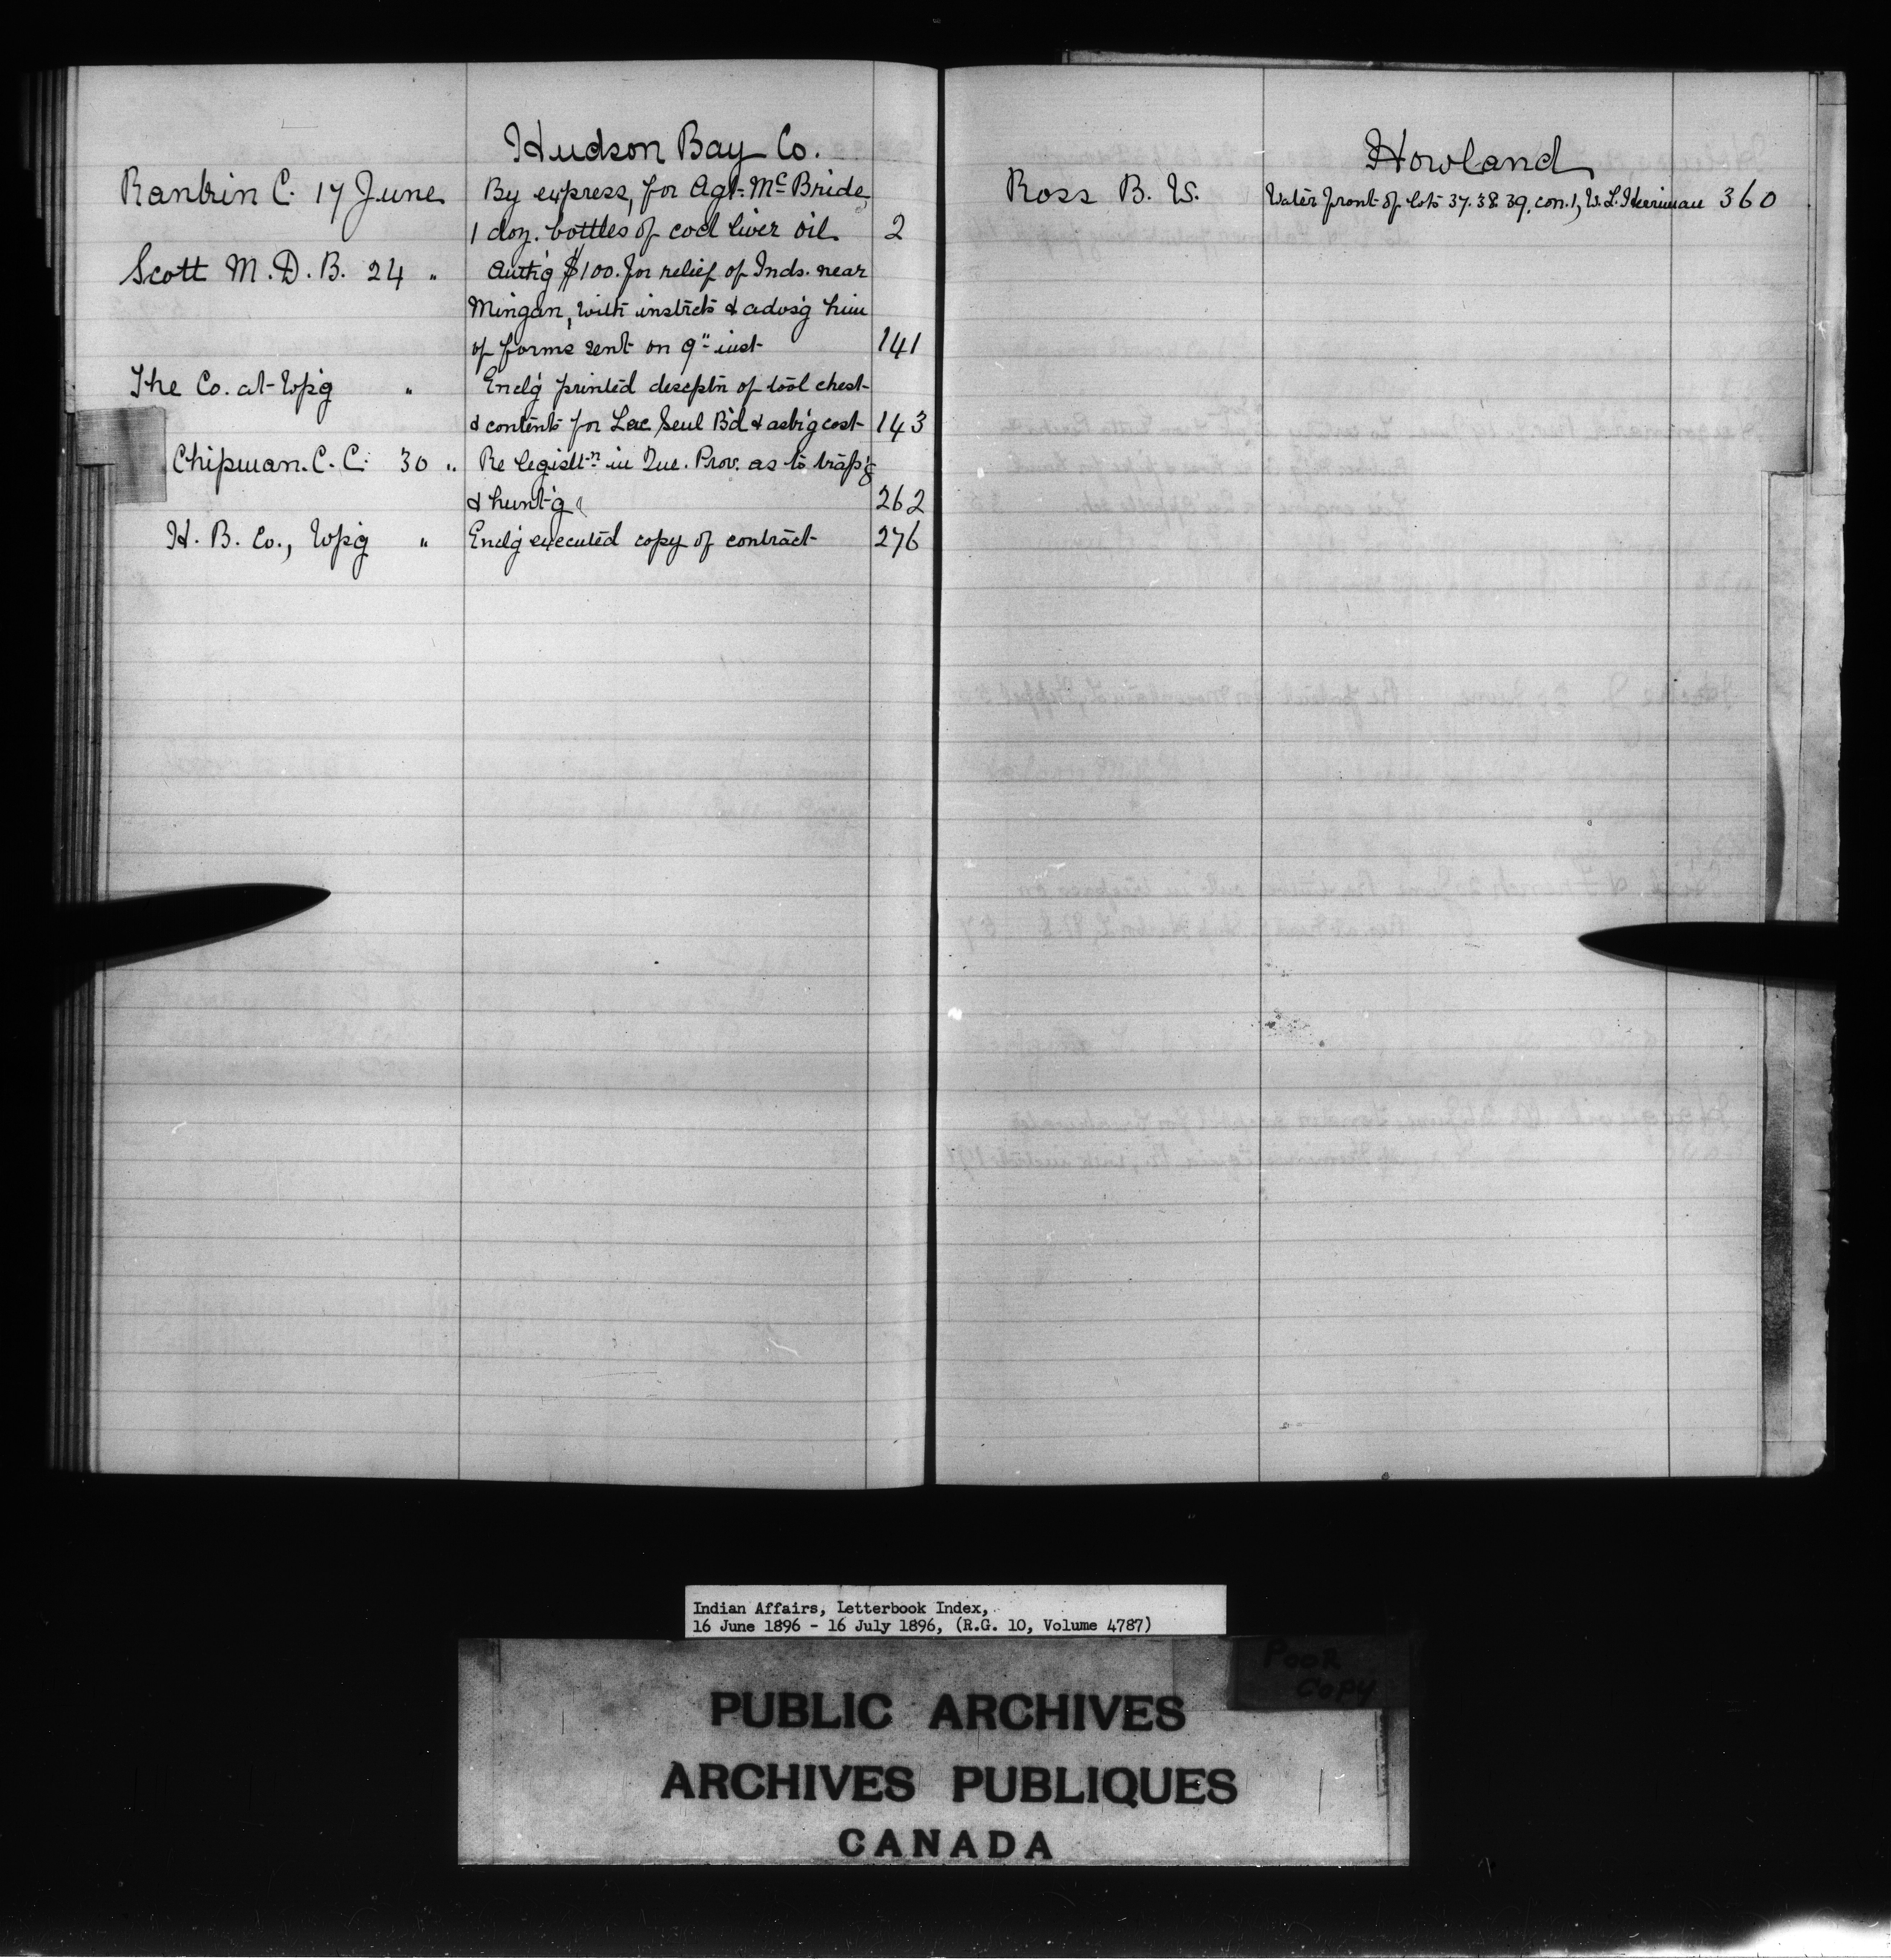 Hudson Bay Co.
Rankin C. 17 June By express, for Agt. McBride,
1 doz. bottles of cod liver oil 2
Scott M. D. B. 24 " Auth'g $100. for relief of Inds. near
Mingan, with instrcts & advs'g him
of forms sent on 9" inst 141
The Co. at Wp'g " Encl'g printed descptn of tool chest
& contents for Lac Seul B'd & ask'g cost 143
Chipman. C. C. 30 " Re legislt'n in Que. Prov. as to trap'g
& hunt'g 262
H. B. Co., Wp'g " Encl'g executed copy of contract 276
Howland
Ross B. W. Water front of lots 37. 38. 39. con. 1, W. L. 360
Indian Affairs, Letterbook Index,
16 June 1896 - 16 July 1896, (R.G. 10, Volume 4787)
POOR
COPY
PUBLIC ARCHIVES
ARCHIVES PUBLIQUES
CANADA